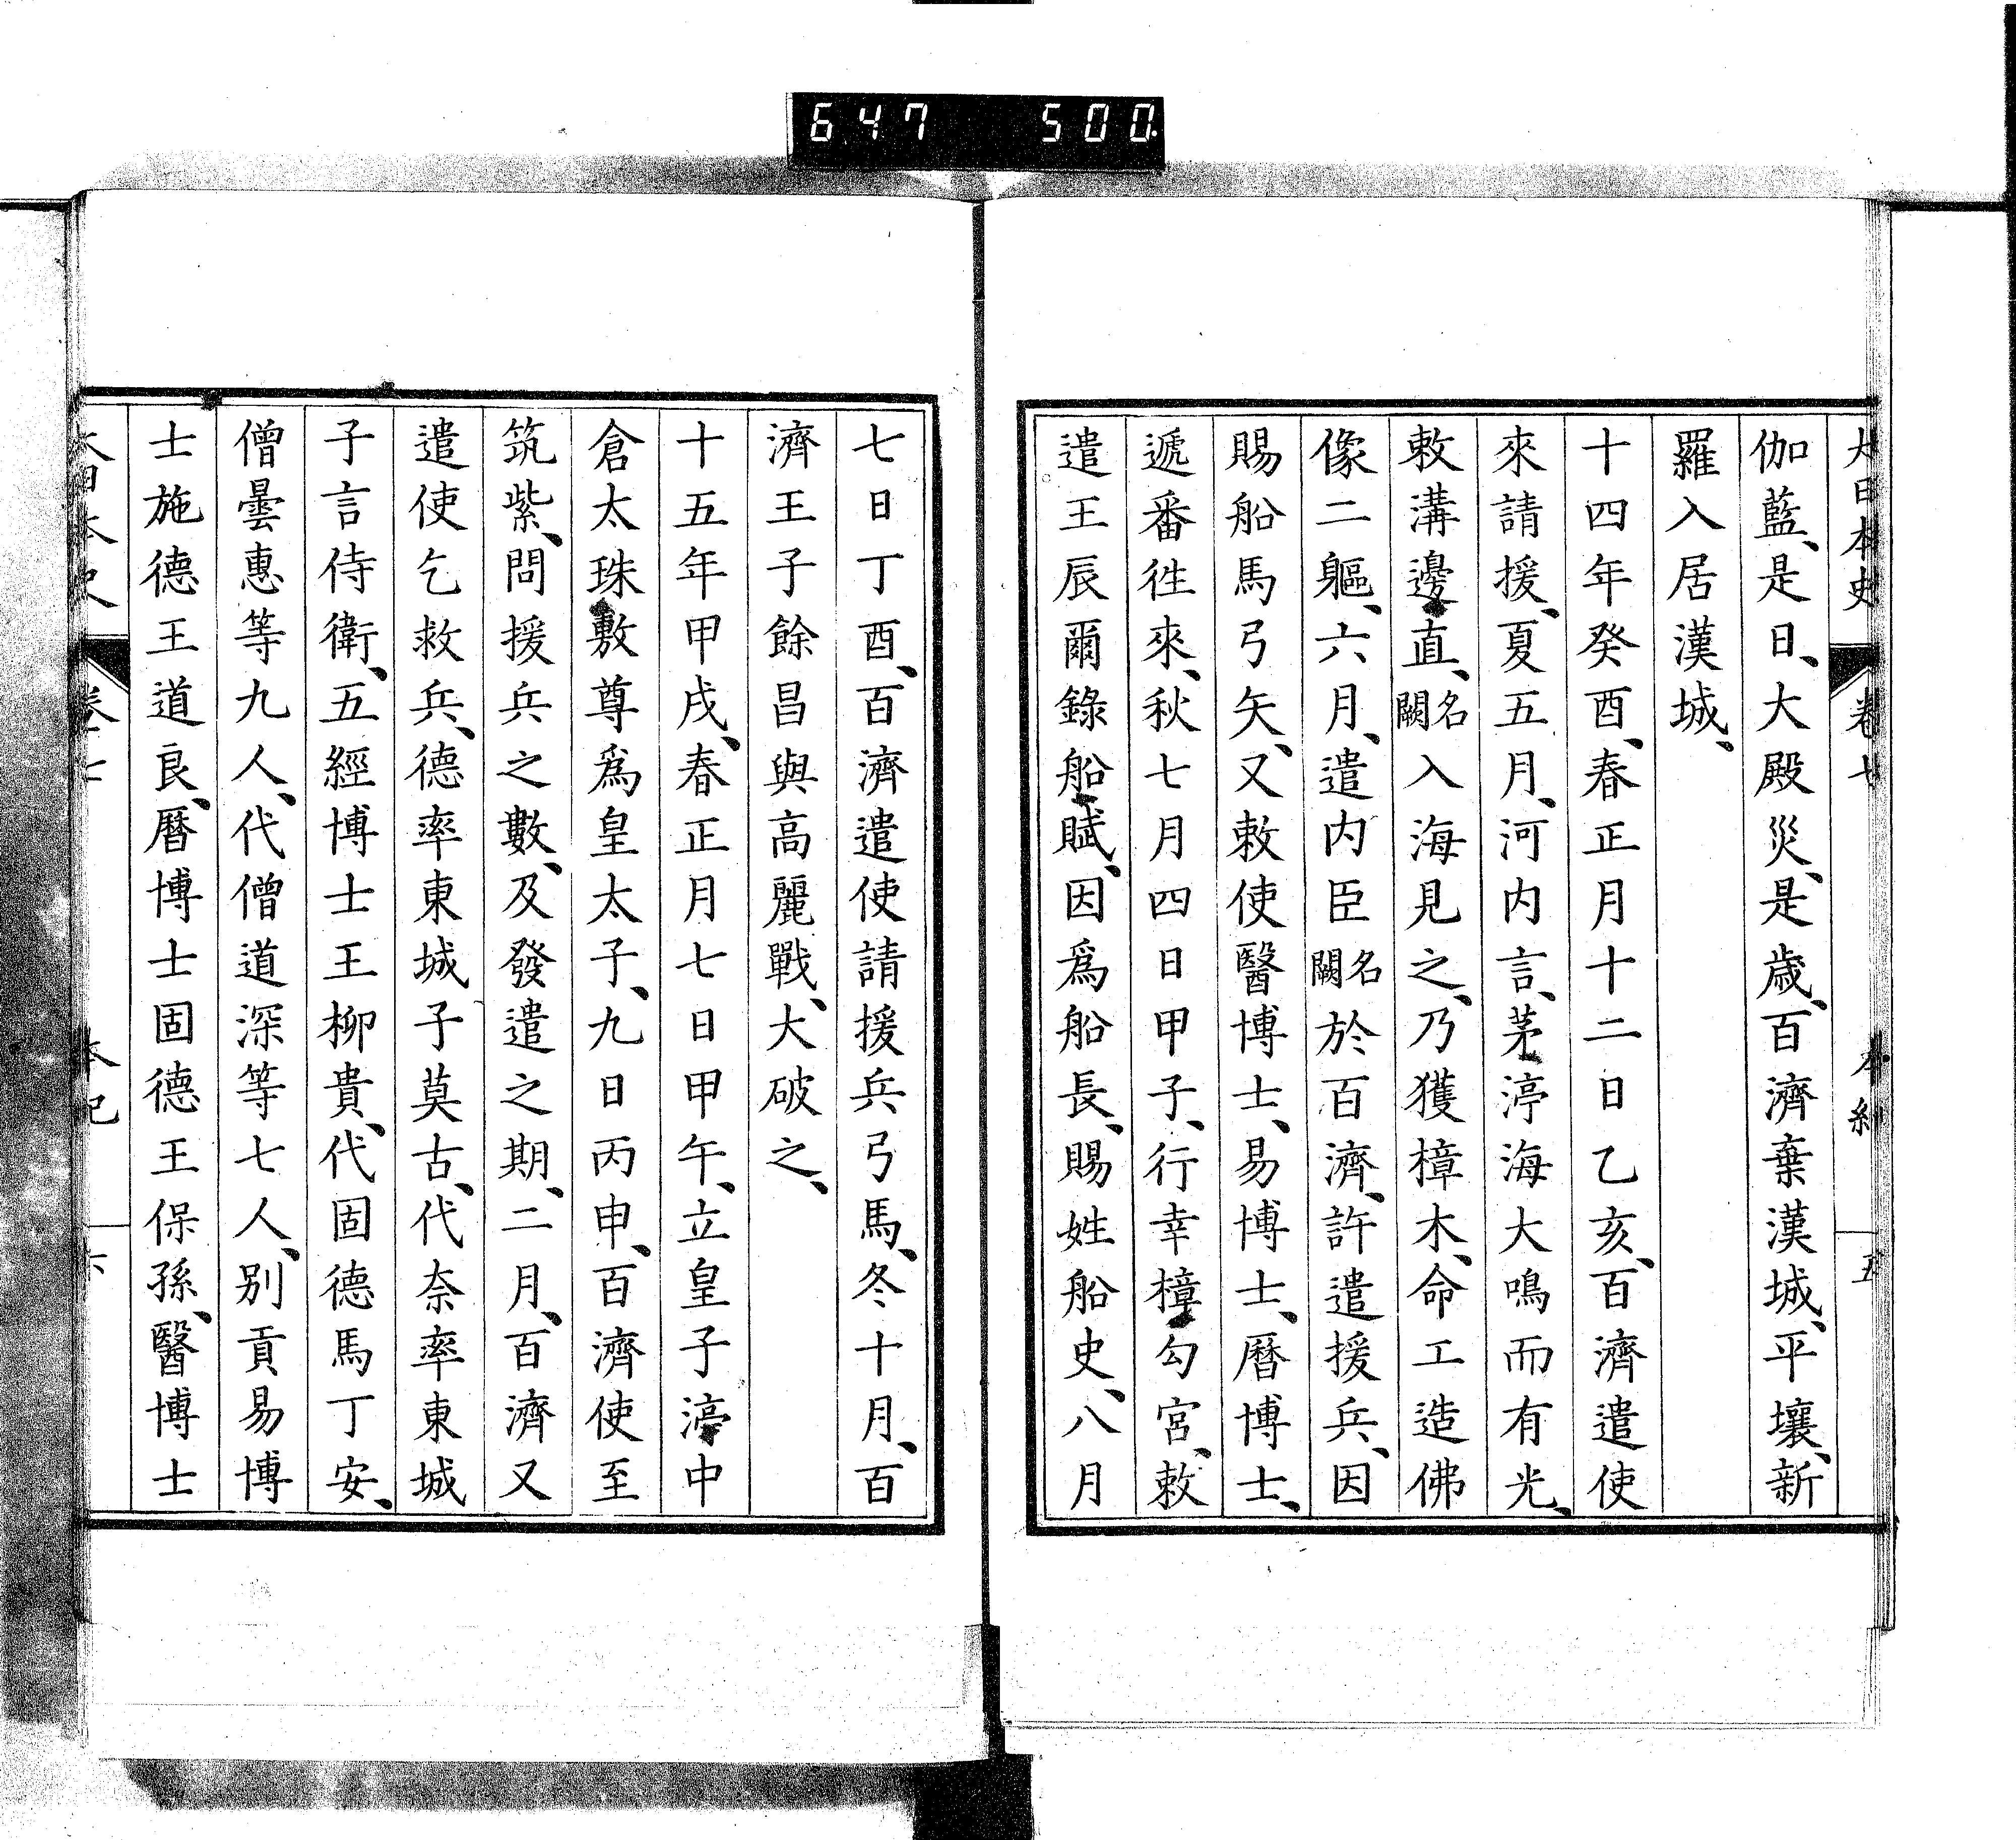 647 500
大日本史 卷七 本紀 五
伽藍、是日、大殿災、是歲、百濟棄漢城、平壤、新
羅入居漢城、
十四年癸酉、春正月十二日乙亥、百濟遣使
來請援、夏五月、河内言、茅渟海大鳴而有光、
敕溝邊直、名闕入海見之、乃獲樟木、命工造佛
像二軀、六月、遣内臣名闕於百濟、許遣援兵、因
賜船馬弓矢、又敕使醫博士、易博士、曆博士、
遞番徃來、秋七月四日甲子、行幸樟勾宮、敕
遣王辰爾錄船賦、因爲船長、賜姓船史、八月
七日丁酉、百濟遣使請援兵弓馬、冬十月、百
濟王子餘昌與高麗戰、大破之、
十五年甲戌、春正月七日甲午、立皇子渟中
倉太珠敷尊爲皇太子、九日丙申、百濟使至
筑紫、問援兵之數、及發遣之期、二月、百濟又
遣使乞救兵、德率東城子莫古、代奈率東城
子言侍衛、五經博士王柳貴、代固德馬丁安、
僧曇惠等九人、代僧道深等七人、別貢易博
士施德王道良、曆博士固德王保孫、醫博士
大日本史 卷七 本紀 六